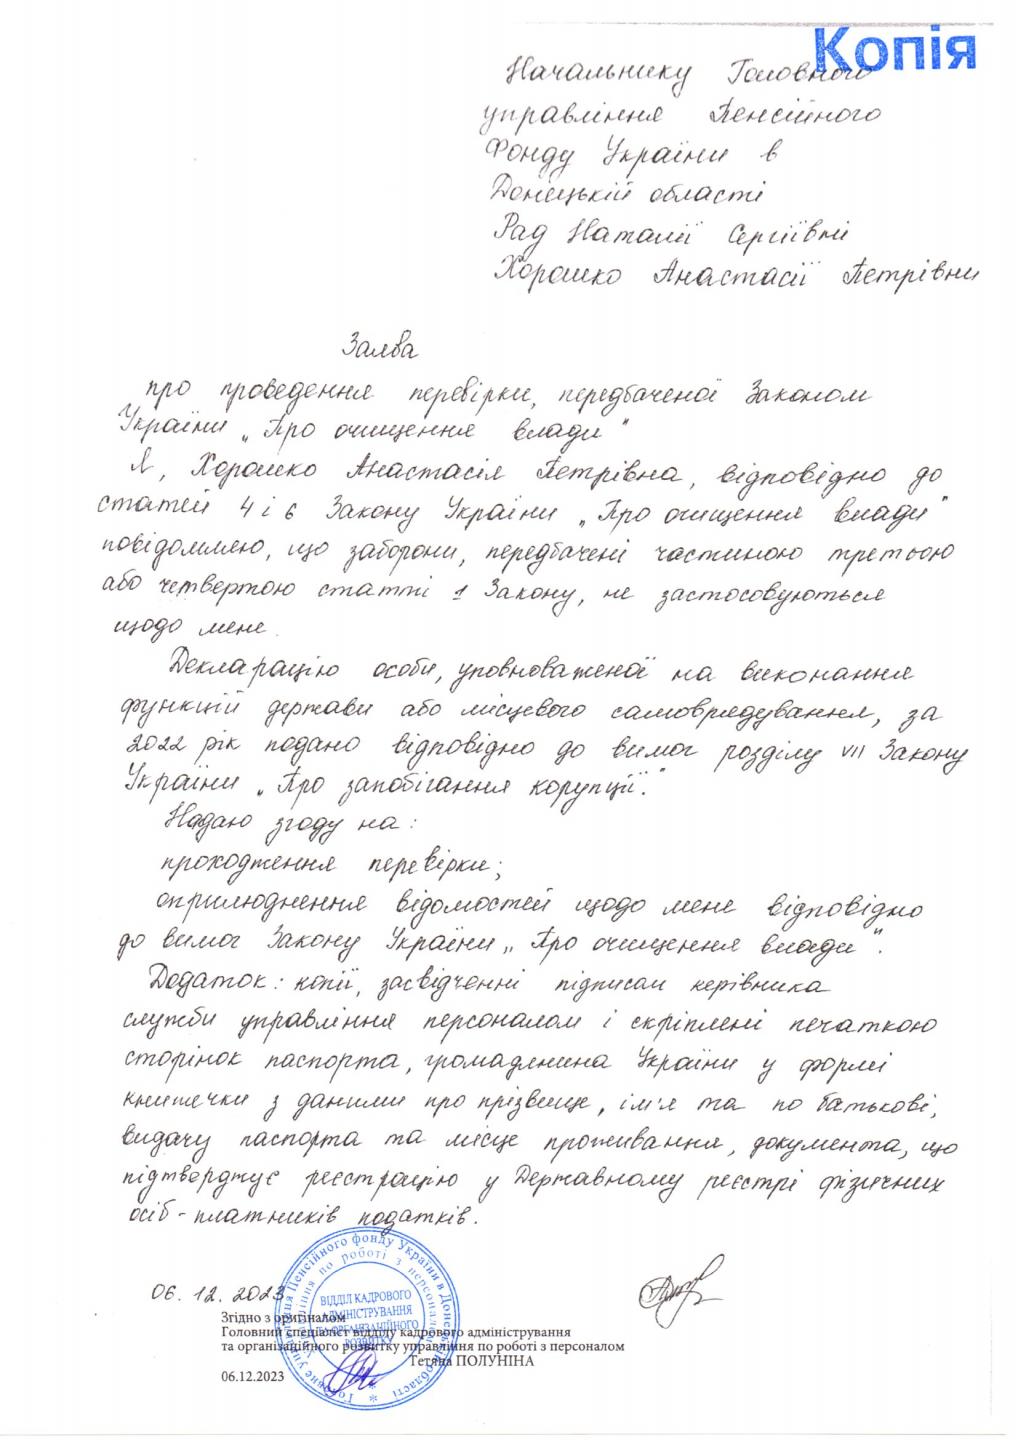 Копія
Начальнику Головного
управління Пенсійного
Фонду України в
Донецькій області
Рад Наталії Сергіївні
Хорошко Анастасії Петрівни
Заява
про проведення перевірки, передбаченої Законом
України „Про очищення влади"
Я, Хорошко Анастасія Петрівна, відповідно до
статей 4 і 6 Закону України „Про очищення влади"
повідомляю, що заборони, передбачені частиною третьою
або четвертою статті 1 Закону, не застосовуються
щодо мене.
Декларацію особи, уповноваженої на виконання
функцій держави або місцевого самоврядування, за
2022 рік подано відповідно до вимог розділу VII Закону
України „Про запобігання корупції."
Надаю згоду на:
проходження перевірки;
оприлюднення відомостей щодо мене відповідно
до вимог Закону України „Про очищення влади".
Додаток: копії, засвідченні підписом керівника
служби управління персоналом і скріплені печаткою
сторінок паспорта, громадянина України у формі
книжечки з даними про прізвище, ім'я та по батькові,
видачу паспорта та місце проживання, документа, що
підтверджує реєстрацію у Державному реєстрі фізичних
осіб-платників податків.
06.12.2023
Згідно з оригіналом
Головний спеціаліст відділу кадрового адміністрування
та організаційного розвитку управління по роботі з персоналом
Тетяна ПОЛУНІНА
06.12.2023
Головне управління Пенсійного фонду України в Донецькій області
Управління по роботі з персоналом
ВІДДІЛ КАДРОВОГО
АДМІНІСТРУВАННЯ
ТА ОРГАНІЗАЦІЙНОГО
РОЗВИТКУ